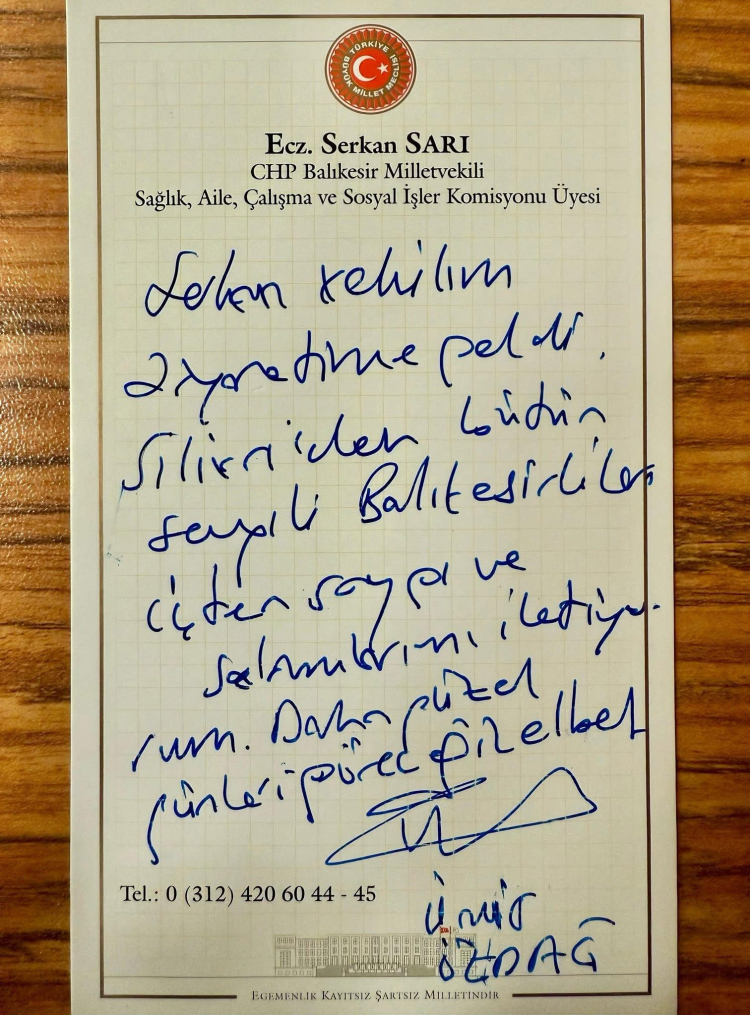 TÜRKİYE BÜYÜK MİLLET MECLİSİ
Ecz. Serkan SARI
CHP Balıkesir Milletvekili
Sağlık, Aile, Çalışma ve Sosyal İşler Komisyonu Üyesi
Serkan vekilim
ziyaretime geldi.
Silivri'den bütün
sevgili Balıkesirlilere
içten saygı ve
selamlarımı iletiyo-
rum. Daha güzel
günleri göreceğiz elbet
Tel.: 0 (312) 420 60 44 - 45
Ümit
ÖZDAĞ
EGEMENLİK KAYITSIZ ŞARTSIZ MİLLETİNDİR